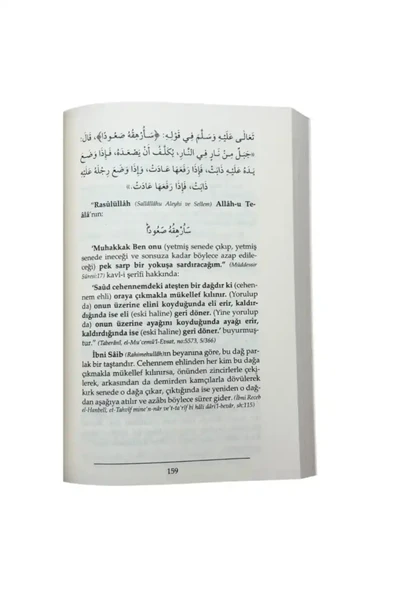 تَعَالَى عَلَيْهِ وَسَلَّمَ فِي قَوْلِهِ: ﴿سَأُرْهِقُهُ صَعُودًا﴾، قَالَ:
«جَبَلٌ مِنْ نَارٍ فِي النَّارِ، يُكَلَّفُ أَنْ يَصْعَدَهُ، فَإِذَا وَضَعَ
يَدَهُ عَلَيْهِ ذَابَتْ، فَإِذَا رَفَعَهَا عَادَتْ، وَإِذَا وَضَعَ رِجْلَهُ عَلَيْهِ
ذَابَتْ، فَإِذَا رَفَعَهَا عَادَتْ.»
"Rasûlüllâh (Sallâllâhu Aleyhi ve Sellem) Allâh-u Te-
âlâ'nın:
سَأُرْهِقُهُ صَعُودًا
'Muhakkak Ben onu (yetmiş senede çıkıp, yetmiş
senede ineceği ve sonsuza kadar böylece azap edile-
ceği) pek sarp bir yokuşa sardıracağım.' (Müddessir
Sûresi:17) kavl-i şerîfi hakkında:
'Saûd cehennemdeki ateşten bir dağdır ki (cehen-
nem ehli) oraya çıkmakla mükellef kılınır. (Yorulup
da) onun üzerine elini koyduğunda eli erir, kaldır-
dığında ise eli (eski haline) geri döner. (Yine yorulup
da) onun üzerine ayağını koyduğunda ayağı erir,
kaldırdığında ise (eski haline) geri döner.' buyurmuş-
tur." (Taberânî, el-Mu'cemü'l-Evsat, no:5573, 5/366)
İbni Sâib (Rahimehullâh)ın beyanına göre, bu dağ par-
lak bir taştandır. Cehennem ehlinden her kim bu dağa
çıkmakla mükellef kılınırsa, önünden zincirlerle çeki-
lerek, arkasından da demirden kamçılarla dövülerek
kırk senede o dağa çıkar, çıktığında ise yeniden o dağ-
dan aşağıya atılır ve azâbı böylece sürer gider. (İbni Receb
el-Hanbelî, et-Tahvîf mine'n-nâr ve't-ta'rîf bi hâli dâri'l-bevâr, sh:115)
159